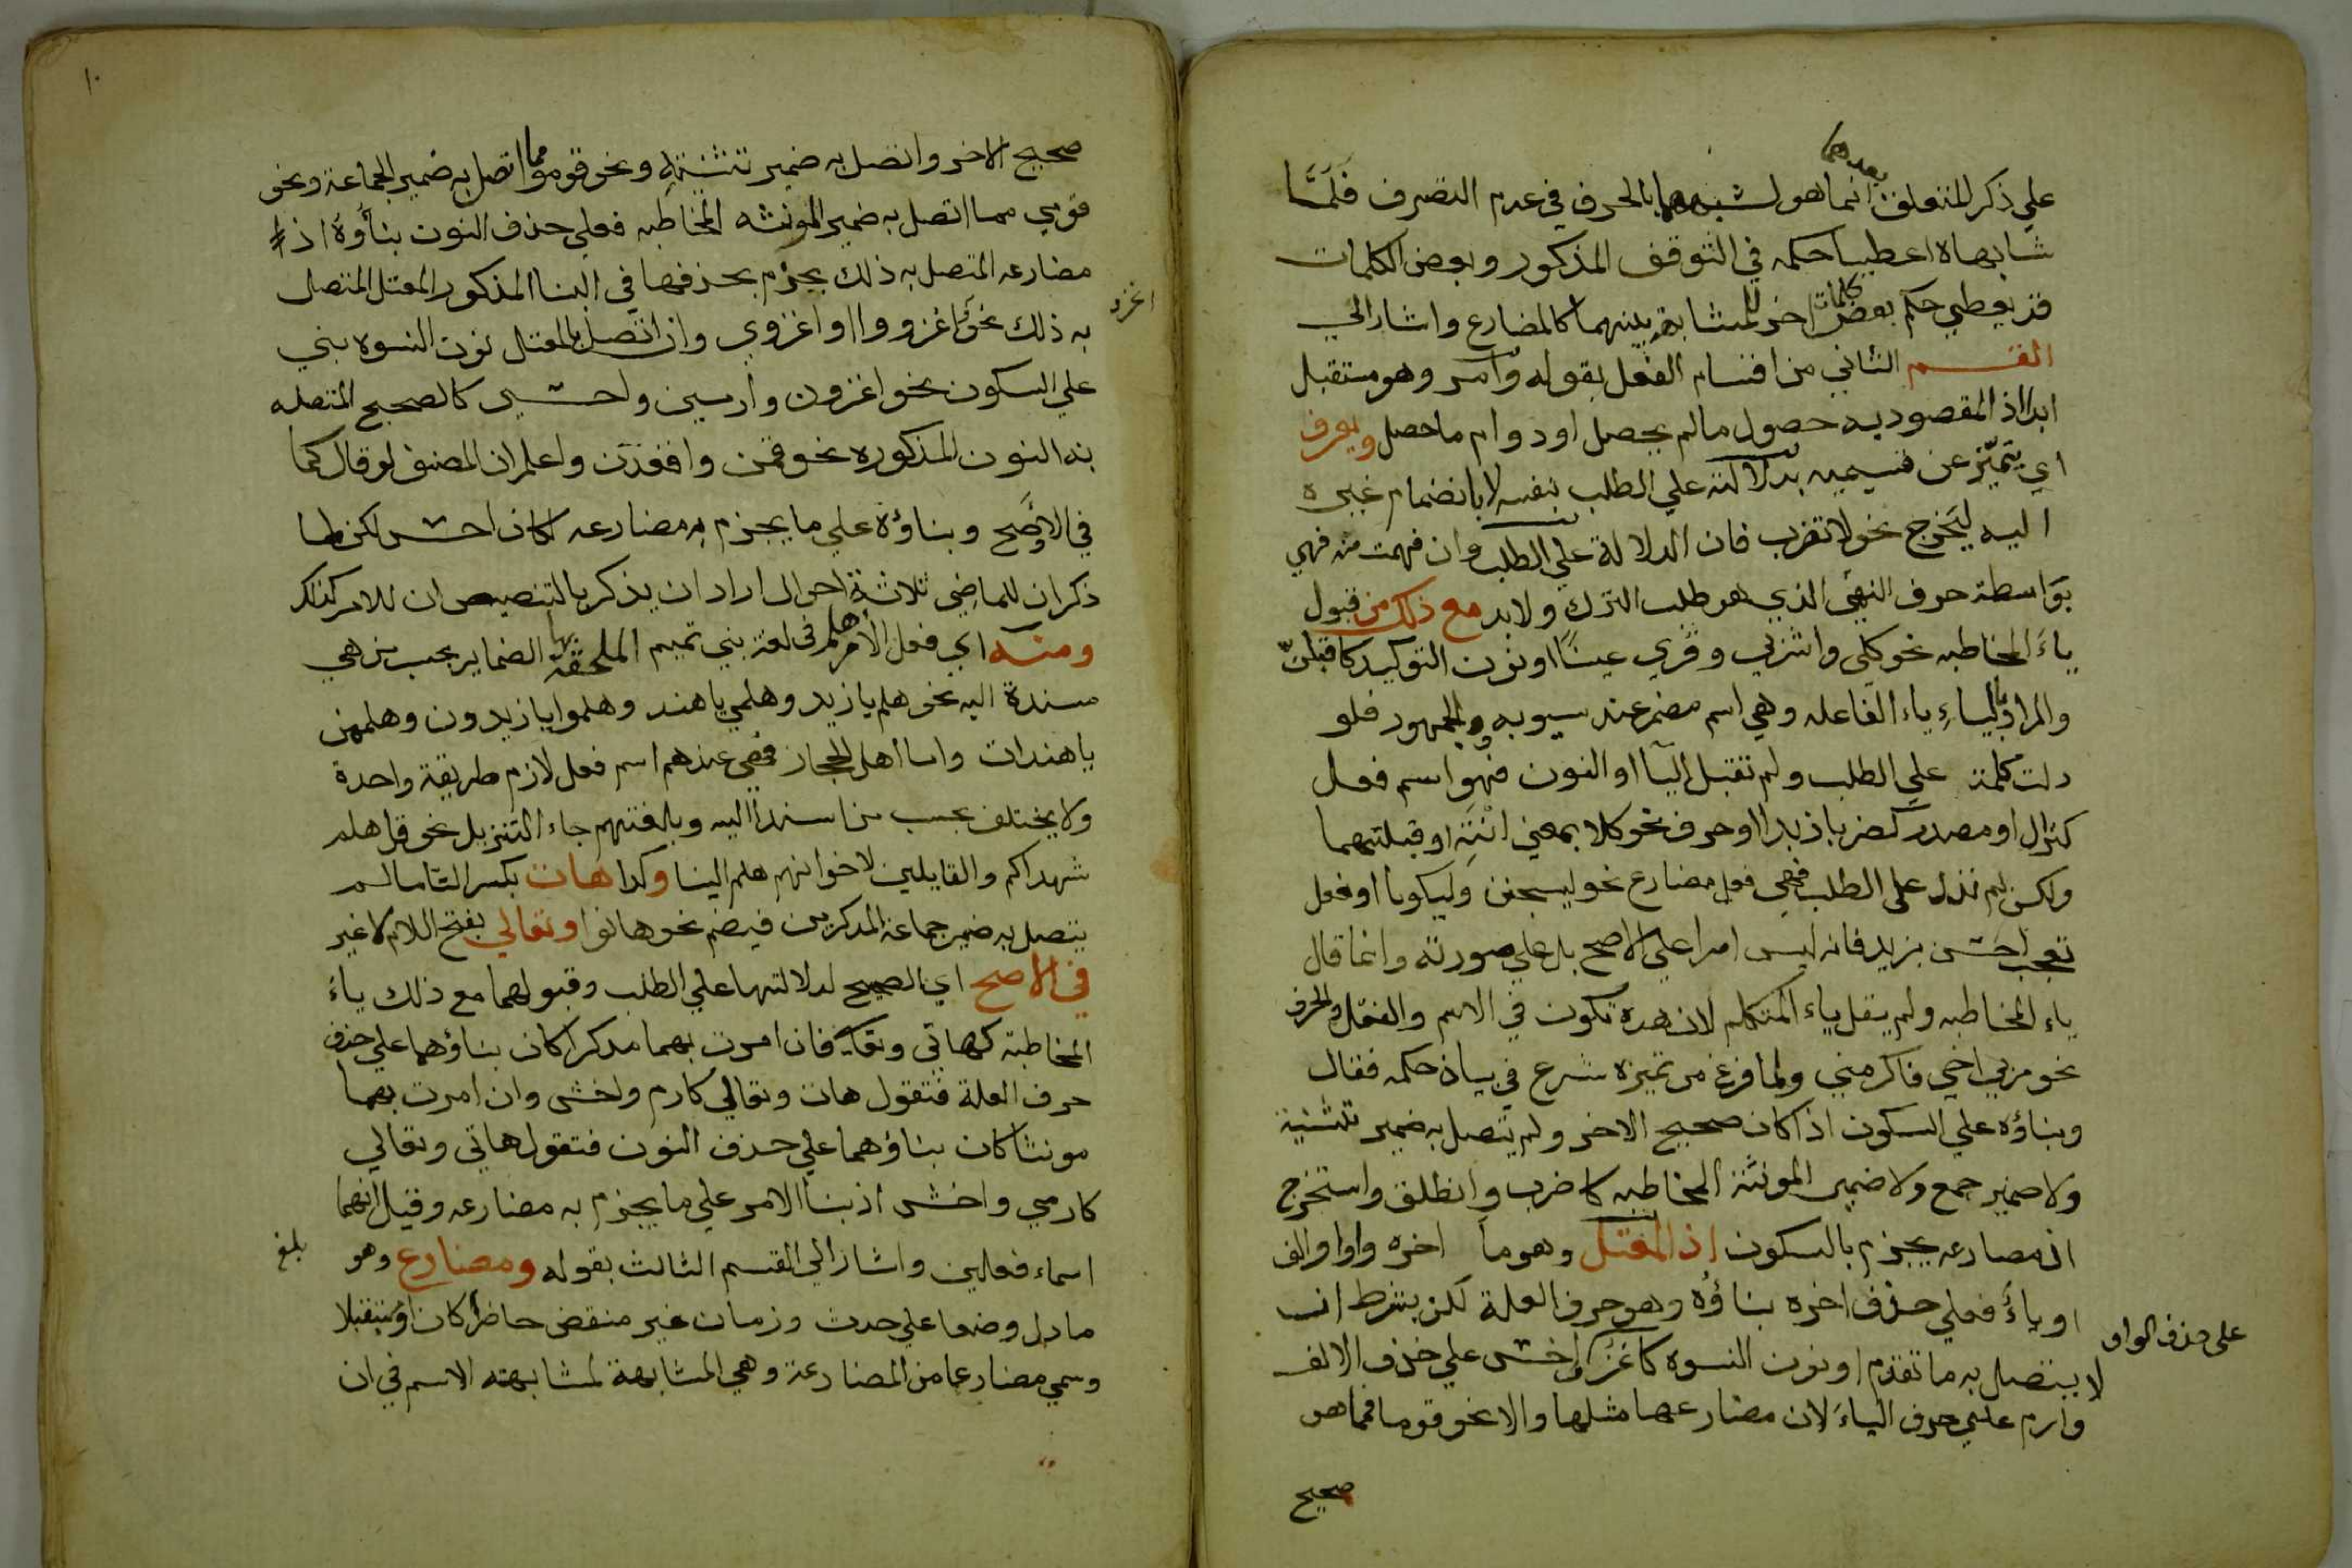 على ذكر المتعلق بعدهما انما هو لشبههما بالحرف في عدم التصرف فلما
شابهاه اعطيا حكمه في التوقف المذكور وبعض الكلمات
قد يعطي حكم بعض كلمات اخر للمشابهة بينهما كالمضارع واشار الي
القسم الثاني من اقسام الفعل بقوله وامر وهو مستقبل
ابدا اذ المقصود به حصول مالم يحصل او دوام ما حصل ويعرف
اي يتميز عن قسيميه بدلالته علي الطلب بنفسه لا بانضمام غيره
اليه ليخرج نحو لا تضرب فان الدلالة علي الطلب وان فهمت منه فهي
بواسطة حرف النهي الذي هو طلب الترك ولابد مع ذلك من قبول
ياء المخاطبه نحو كلي واشربي وقري عينا او نون التوكيد كاقبلن
والمراد بالياء ياء الفاعله وهي اسم مضمر عند سيبويه والجمهور فلو
دلت كلمة علي الطلب ولم تقبل اليا او النون فهو اسم فعل
كنزال او مصدر كضربا زيدا او حرف نحو كلا بمعني انته او قبلتهما
ولكن لم تدل علي الطلب فهي فعل مضارع نحو ليسجنن وليكونا او فعل
تعجب احسن بزيد فانه ليس امرا علي الاصح بل علي صورته وانما قال
ياء المخاطبه ولم يقل ياء المتكلم لان هذه تكون في الاسم والفعل والحرف
نحو مر بي اخي فاكرمني ولما فرغ من تميزه شرع في بيان حكمه فقال
وبناؤه علي السكون اذا كان صحيح الاخر ولم يتصل به ضمير تثنية
ولا ضمير جمع ولا ضمير المونثة المخاطبه كاضرب وانطلق واستخرج
اذ مضارعه يجزم بالسكون اذ المعتل وهو ما اخره واوا او الف
او ياء فعلي حذف اخره بناؤه وهو حرف العلة لكن بشرط ان
لا يتصل به ما تقدم او نون النسوه كاغز واخش علي حذف الالف
على حذف الواو
وارم علي حرف الياء لان مضارعها مثلها والا نحو قوما فما هو
صحيح
١٠
صحيح الاخر واتصل به ضمير تثنية ونحو قوموا مما اتصل به ضمير الجماعة ونحو
قومي مما اتصل به ضمير المونثه المخاطبه فعلي حذف النون بناؤه اذ
مضارعه المتصل به ذلك يجزم بحذفها في البنا المذكور المعتل المتصل
به ذلك نحو اغزوا او اغزوي وان اتصل بالمعتل نون النسوه بني
علي السكون نحو اغزون وارمين واخشين كالصحيح المتصله
به النون المذكوره نحو قمن واقعدن واعلم ان المصنف لو قال كما
في الاوضح وبناؤه علي ما يجزم به مضارعه لكان احسن لكن لما
ذكر ان للماضي ثلاثة احوال اراد ان يذكر بالتنصيص ان للامر كذلك
ومنه اي فعل الامر هلم في لغة بني تميم الملحقة بها الضماير بحسب من هي
مسندة اليه نحو هلم يا زيد وهلمي يا هند وهلموا يا زيدون وهلممن
يا هندات واما اهل الحجاز فهي عندهم اسم فعل لازم طريقة واحدة
ولا يختلف بحسب من اسند اليه وبلغتهم جاء التنزيل نحو قل هلم
شهداكم والقايلين لاخوانهم هلم الينا وكذا هات بكسر التا ما لم
يتصل به ضمير جماعة المذكرين فيضم نحو هاتوا وتعالي بفتح اللام لا غير
في الاصح اي الصحيح لدلالتها علي الطلب وقبولهما مع ذلك ياء
المخاطبة كهاتي وتعالي فان امرت بهما مذكرا كان بناؤهما علي حذف
حرف العلة فتقول هات وتعالي كارم واخش وان امرت بهما
مونثا كان بناؤهما علي حذف النون فتقول هاتي وتعالي
كارمي واخشي اذ بنا الامر علي ما يجزم به مضارعه وقيل انهما
اسماء فعلين واشار الي القسم الثالث بقوله ومضارع وهو
بلغ
ما دل وضعا علي حدث وزمان غير منقض حاضرا كان او مستقبلا
وسمي مضارعا من المضارعة وهي المشابهة لمشابهته الاسم في ان